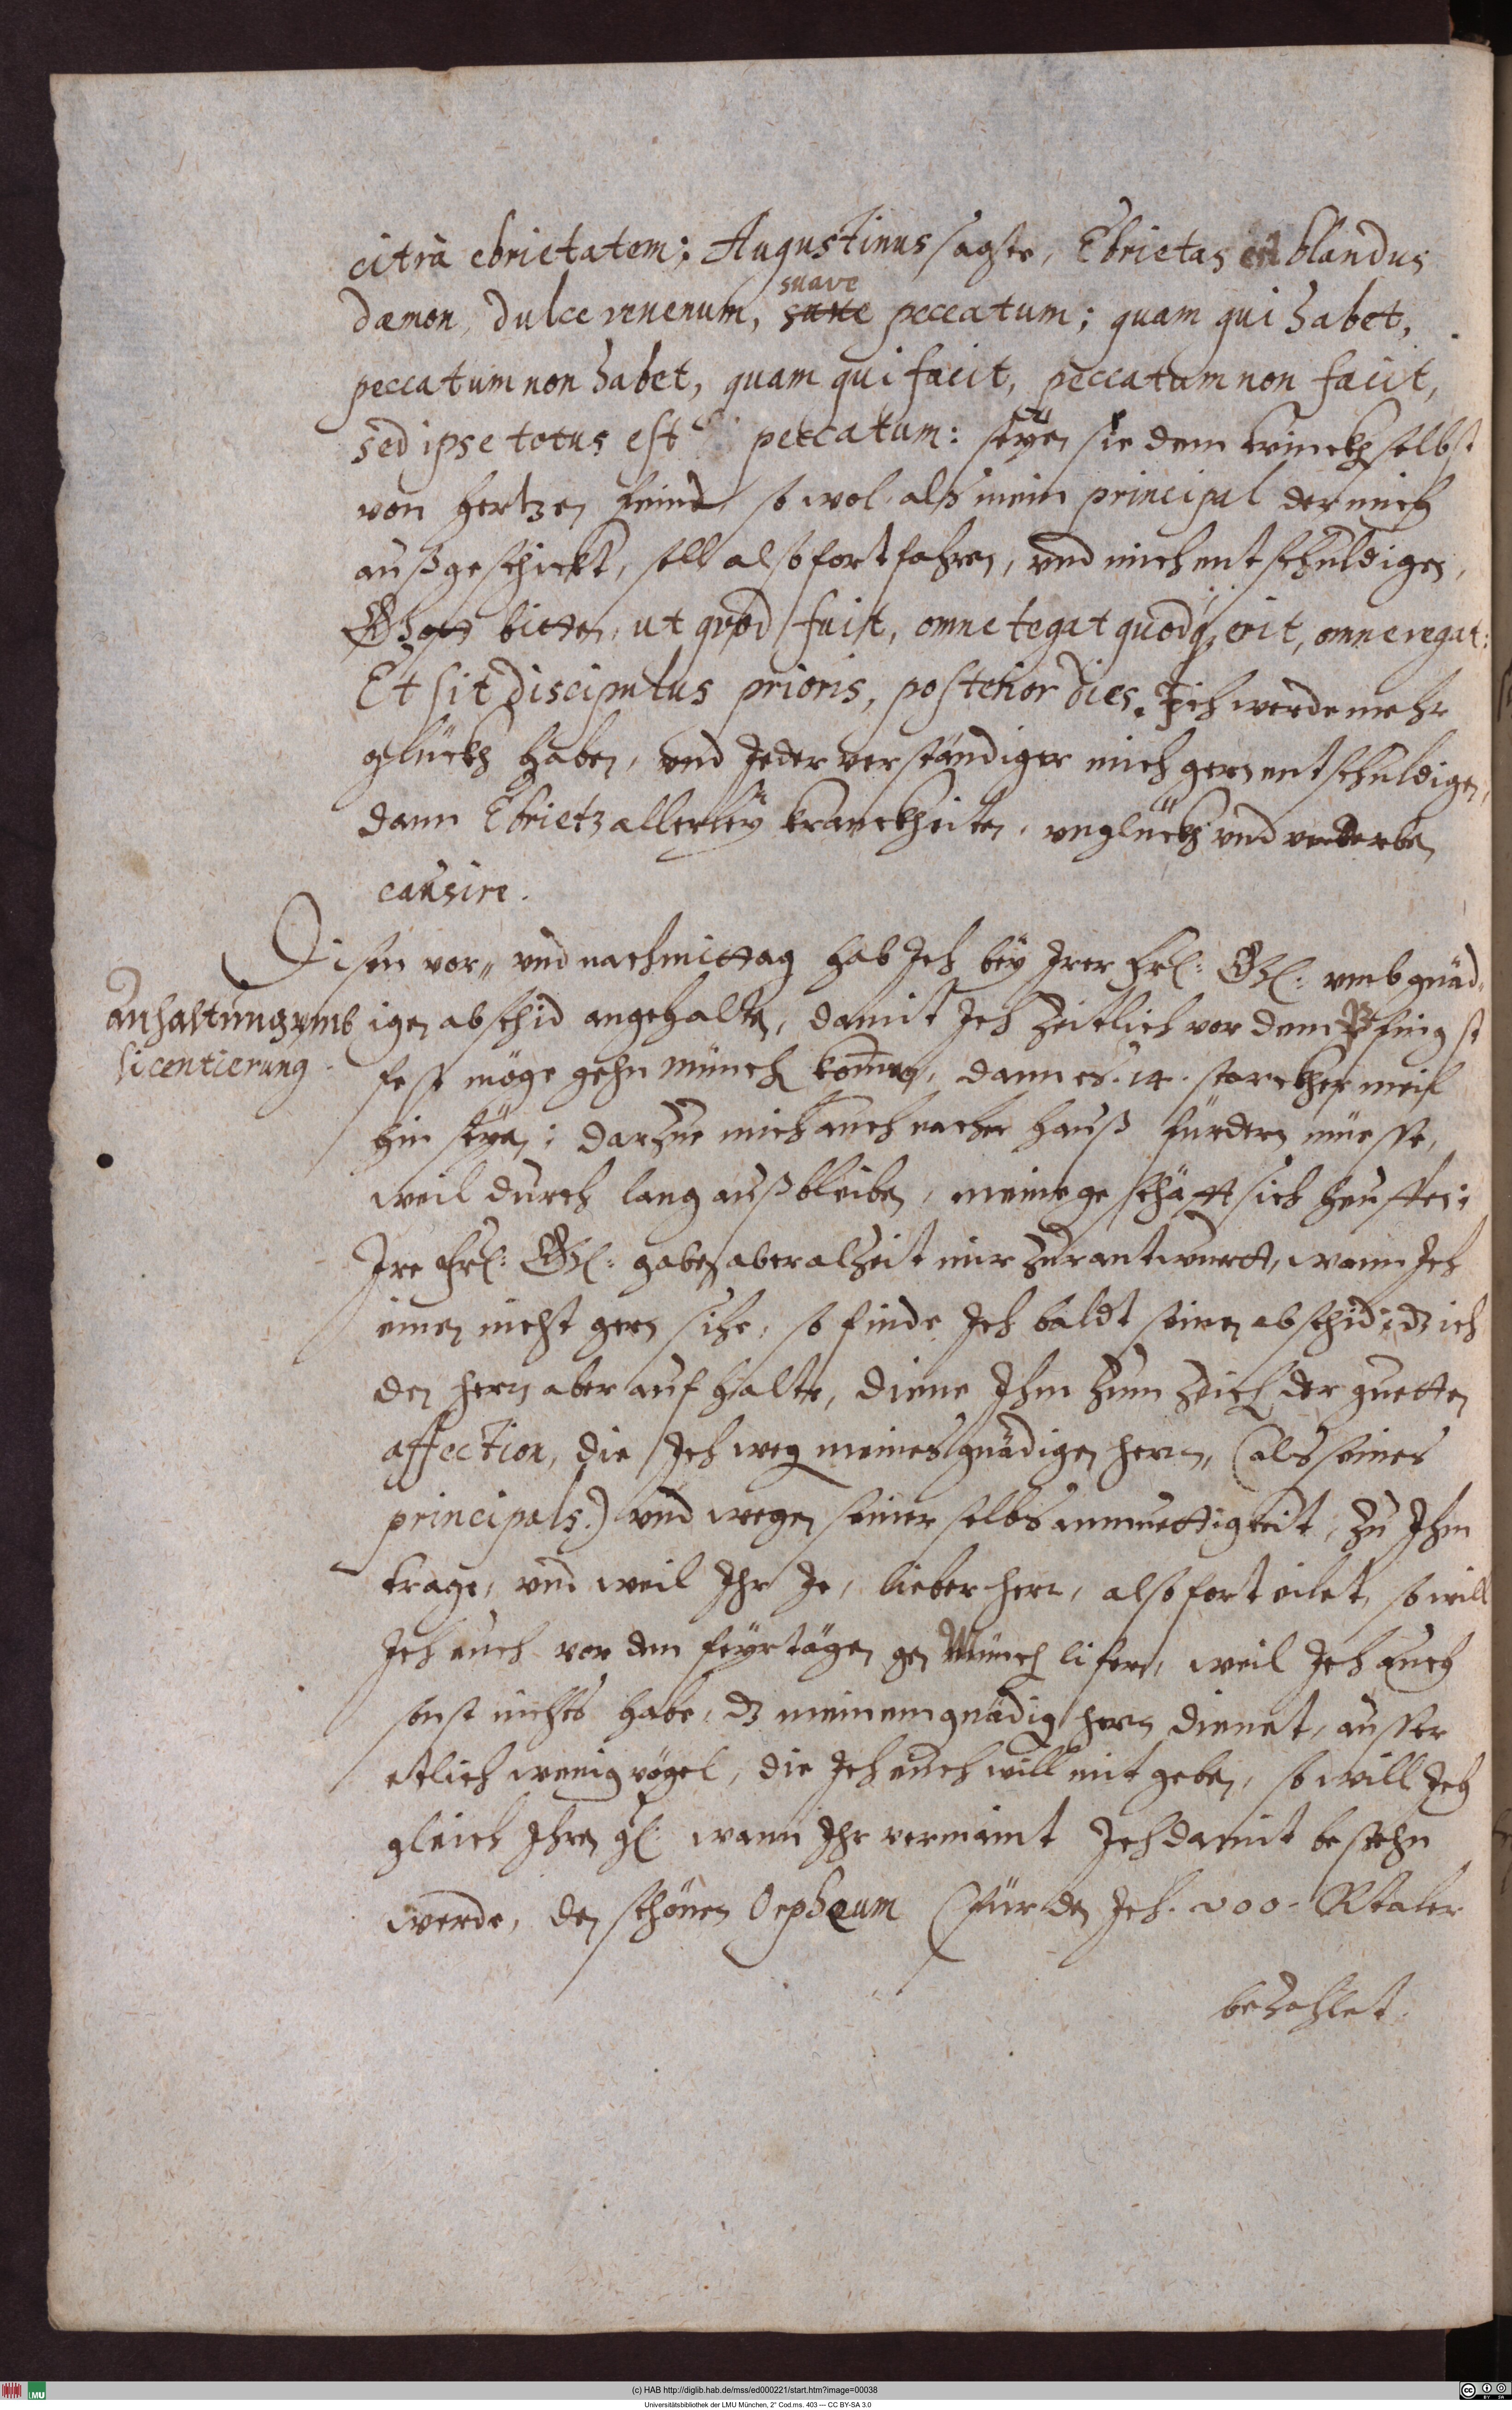 citrà ebrietatem; Augustinus sagte, Ebrietas est blandus
suave
dæmon, dulce venenum, suxe peccatum; quam qui habet,
peccatum non habet, quam qui facit, peccatum non facit,
sed ipse totus est peccatum: seÿen sie dem trinckhen selbst
von hertzen feind, so wol als mein principal der mich
außgeschickt, soll also fortfahren, vnd mich entschuldigen,
Gott bitten, ut quod fuit, omne tegat quodq, erit, omne regat:
Et sit discipulus prioris, posterior dies. Ich werde mehr
glückh haben, vnd Jeder verständiger mich gern entschuldigen,
dann Ebrietz allerleÿ kranckheiten, vnglückh vnd verderben
causire.
Disen vor„ vnd nachmittag hab Ich beÿ Irer Frl: Gl: vmb gnäd„
Anhaltung vmb
licentierung.
igen abschid angehalten, damit Ich zeitlich vor dem Pfingst
fest möge gehn Münch kommen, dann es .14. starckher meil
hin seÿen; darzue mich auch nacher hauß fürdern müesse,
weil durch lang außbleiben, meine geschäfft sich heuffen;
Ire Frl: Gl: gaben aber alzeit mir zur antwurtt, wann Ich
einen nicht gern sihe, so finde Ich baldt seinen abschid; dz ich
den hern aber auf halte, diene Ihm zum zeich der guetten
affection, die Ich weg meines gnädigen hern, (als seines
principals.) vnd wegen seiner selbs anmuettigkeit, zu Ihm
trage, vnd weil Ihr Je, lieber herr, also fort eilet, so will
Ich euch vor den feÿrtägen gen Münch lifern, weil Ich auch
sonst nichts habe, dz meinem gnädig hern dienet, ausser
etlich wenig vögel, die Ich euch will mit geben, so will Ich
gleich Ihren gl: wann Ihr vermaint Ich damit bestehn
werde, den schönen Orpheum (für den Ich .000. Rtaler
bezahlet